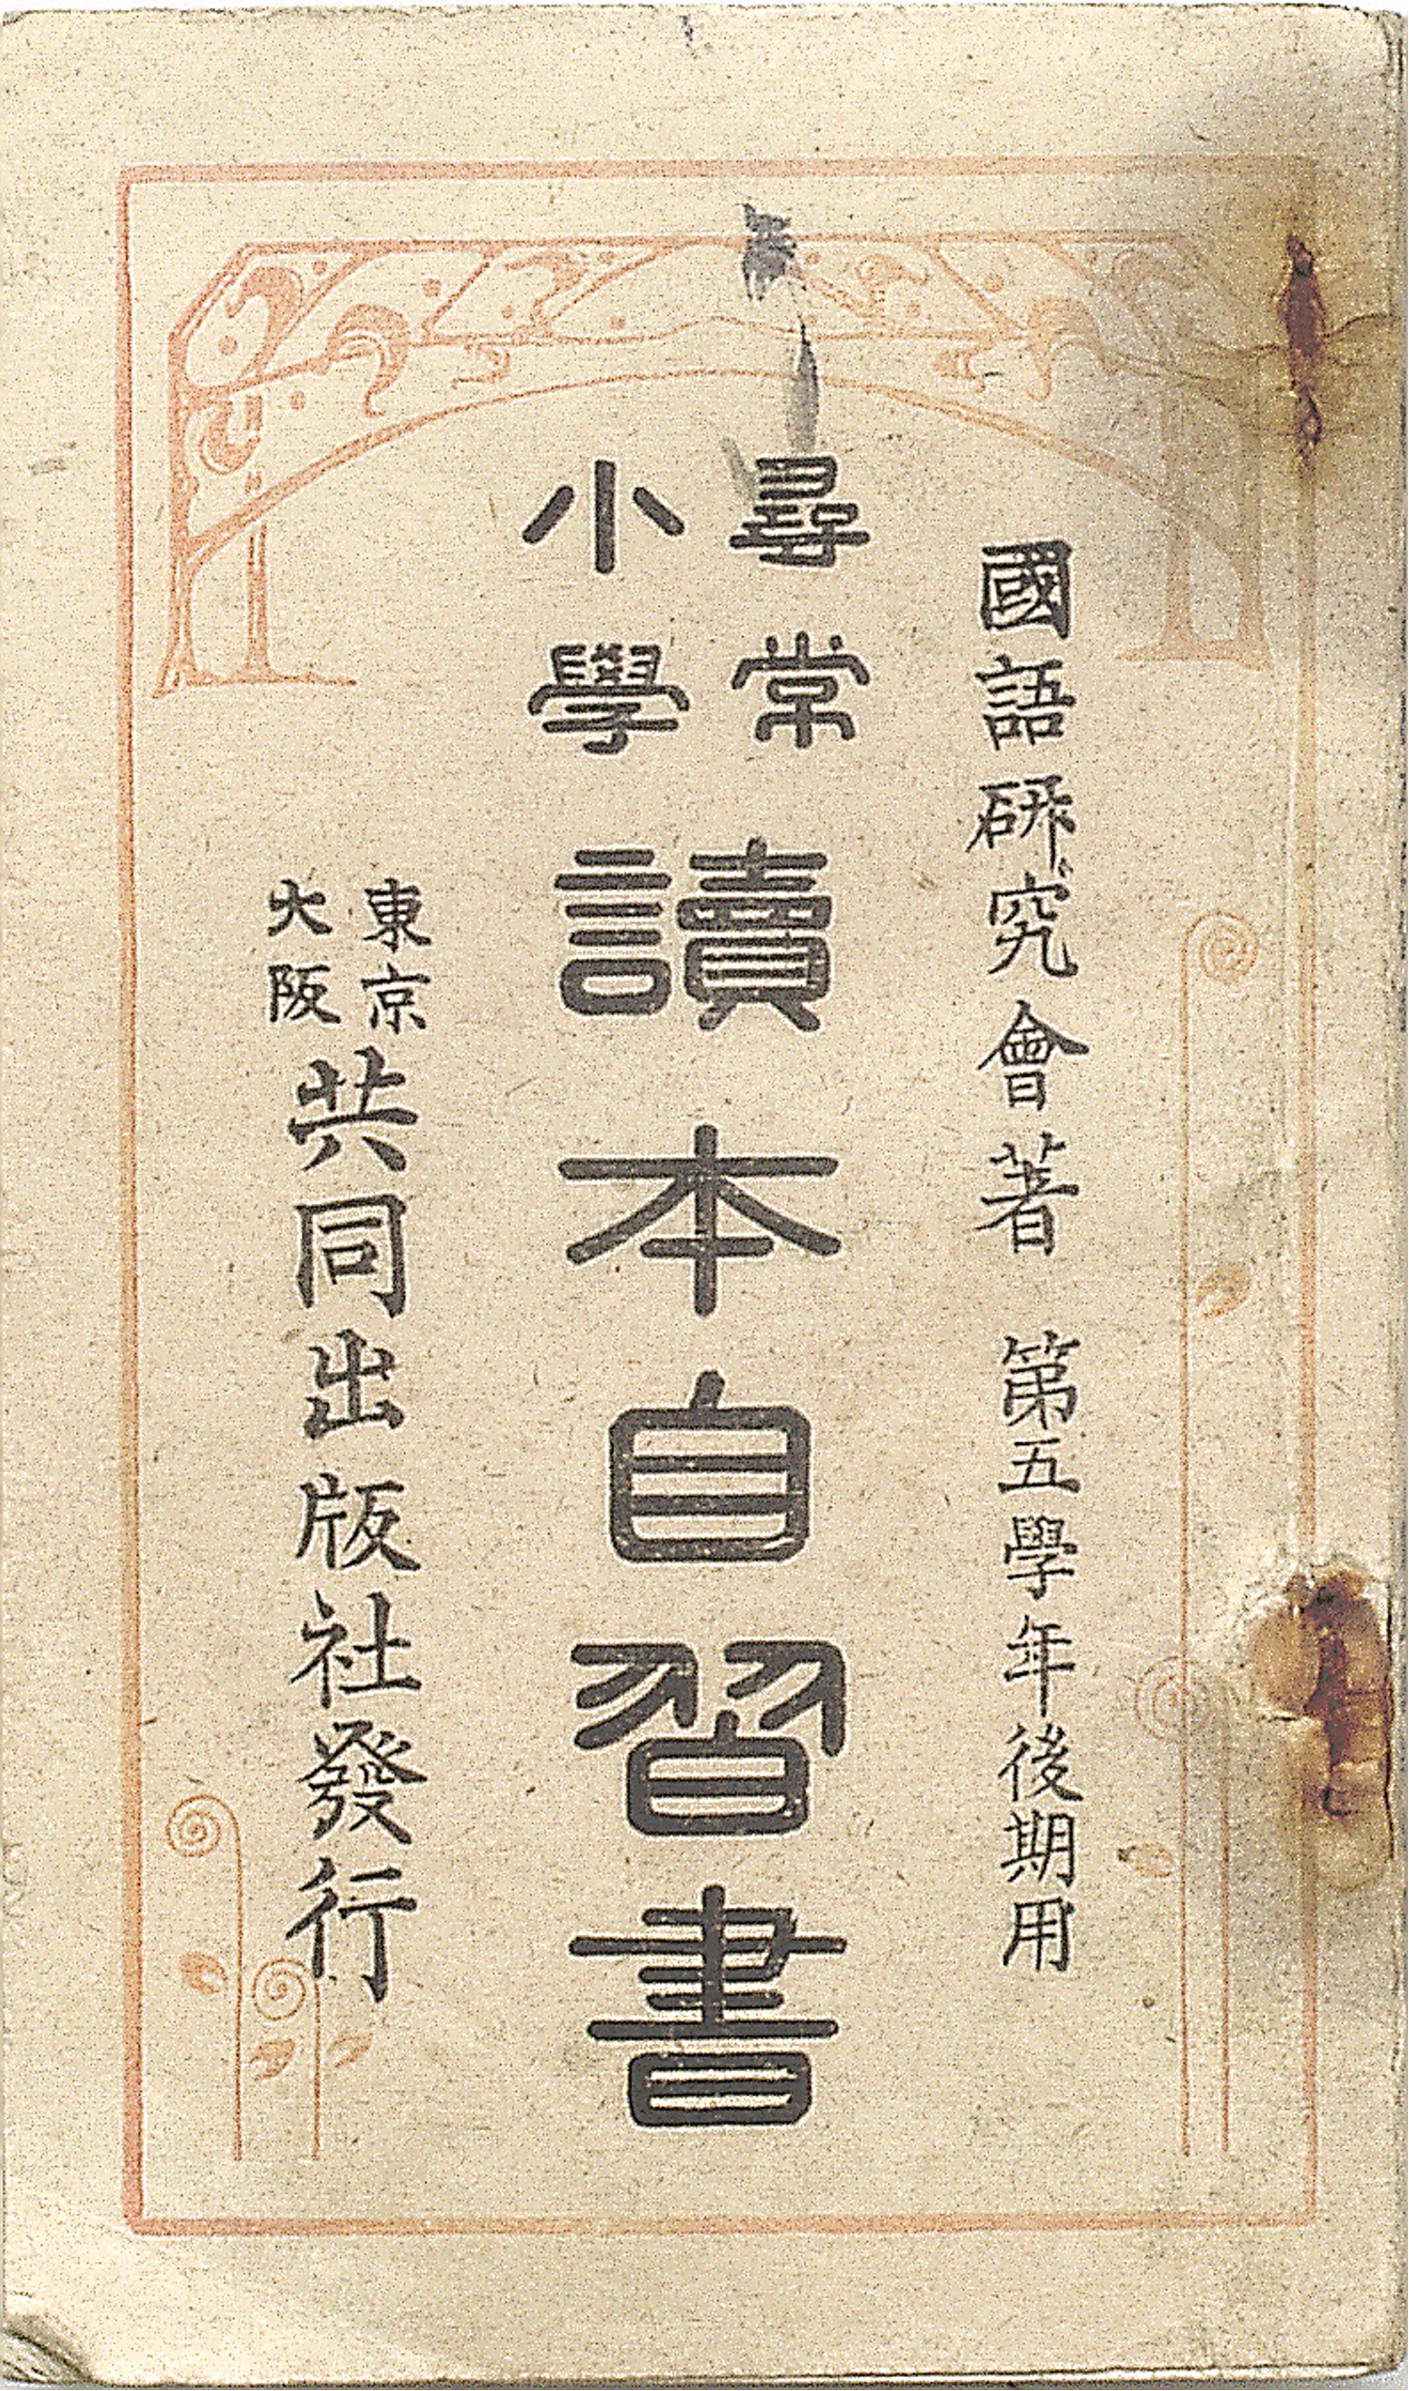 國語研究會著 第五學年後期用
尋常
小學
讀本自習書
東京
大阪
共同出版社發行